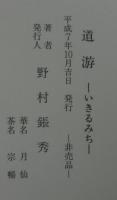 道游 ―いきるみち―
平成7年10月吉日 発行 ―非売品―
著者
発行人
野村 秀
華名 月仙
茶名 宗幡